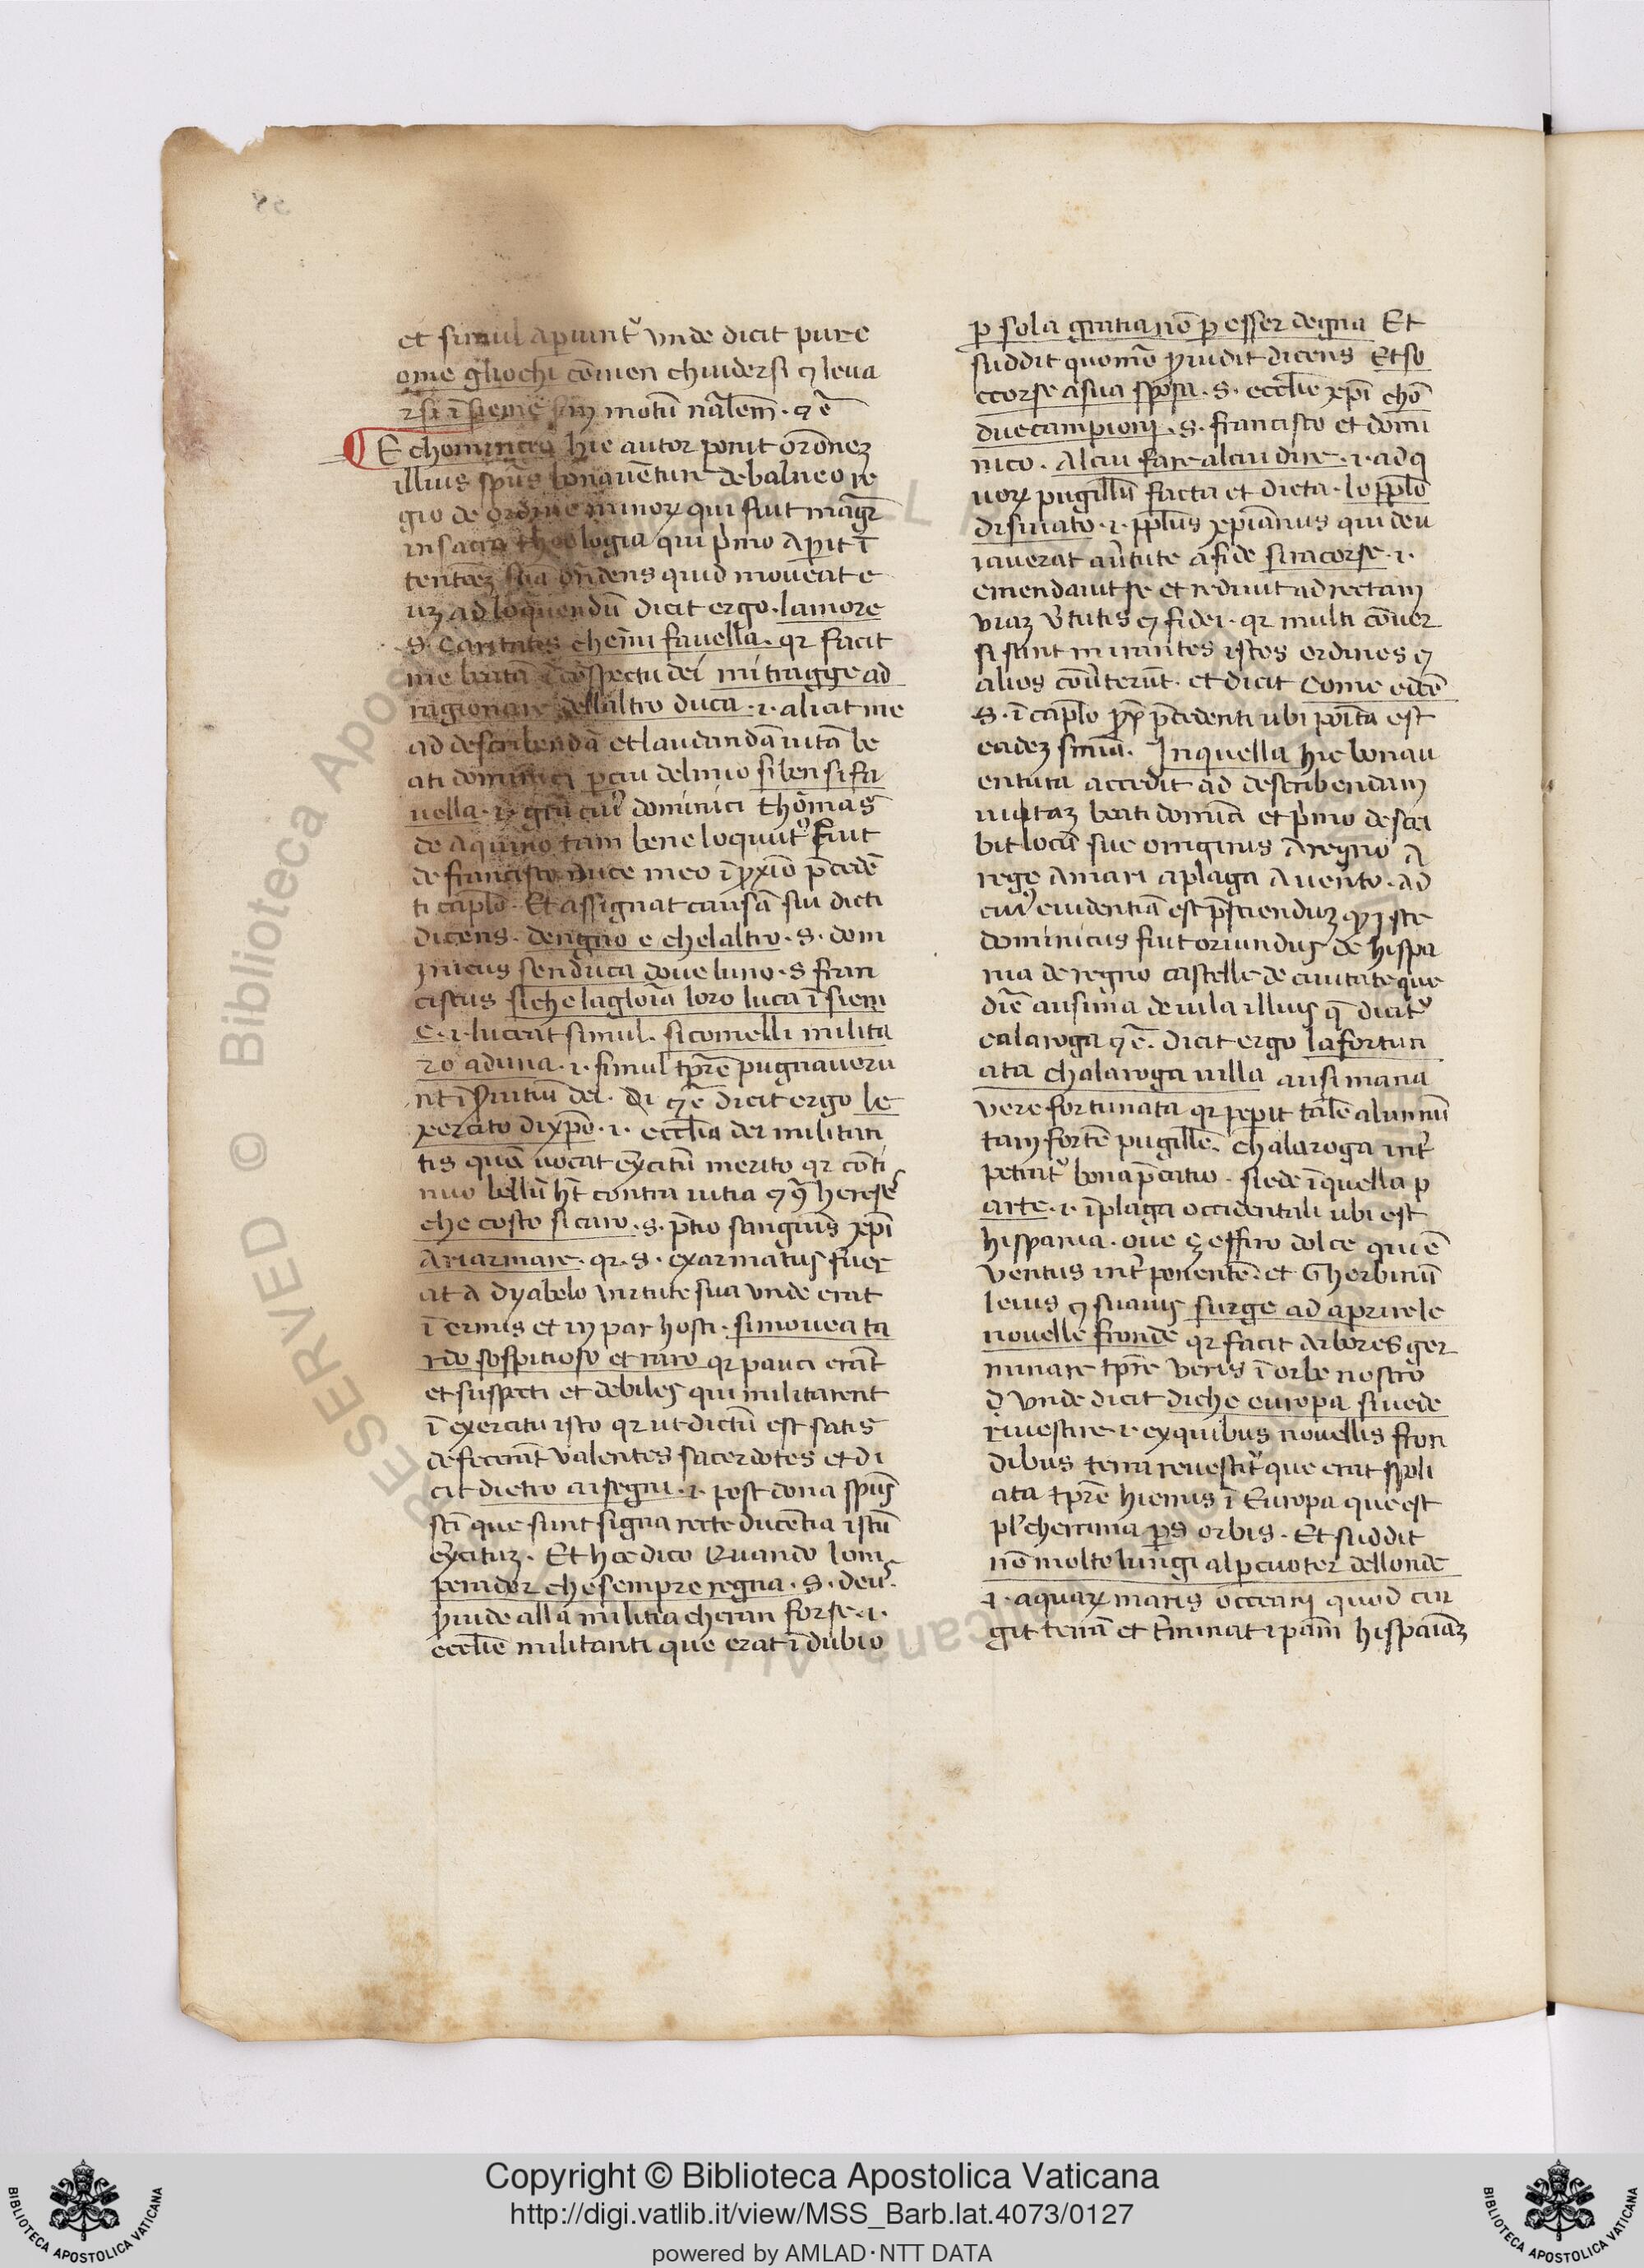 et simul aperiunt᷑ vnde dicit pure
ome gliochi cōuien chiudersi ⁊ leua
rsi ī sieme motū nālem̄ · ⁊ ē
E chomincio hic autor ponit orōnez
illius spūs bonauēture de balneo re
gio de ordine minoꝝ qui fuit magr̄
in sacra theologia qui pͥmo aꝑit ī
tentōez suā on̄dens quid moueat e
uꝫ ad loquendū dicit ergo · lamore
·S· caritatis chemi fauella · qꝛ facit
me beatā ī cōspectu dei mi tragge ad
ragionare dellaltro duca ·i· alicit me
ad describendā et laudandā uitā be
ati dominici ꝑ cui del mio si ben si fa
uella ·i· dominici thomas
de aquino tam bene loquut᷑ fuit
de francisco duce meo ī ꝓxīo p̄cedē
ti caplō · Et assignat causā sui dicti
dicens · dengno e chelaltro ·S· dom
inicus senduca doue luno ·S fran
ciscus siche la gloīa loro luca ī siem
e ·i· lucerīt simul · sicomelli milita
ro aduna ·i· simul tp̄re pugnaueru
nt ī ẜuitiū dei · ⁊ ē dicit ergo le
xercito dixp̄o ·i· eccl̄ia dei militan
tis quā uocat ex̄citū merito qꝛ cōti
nuo bellū ht̄ contra uitia ⁊ ꝯ hereses
che costo si caro ·S· p̄tio sanguīs xp̄i
Ariarmare · qꝛ ·S· exarmatus fuer
at a dyabolo uirtute sua vnde erat
ī ermis et in par hosti · simouea ta
rdo sospitioso et raro qꝛ pauci erāt
et suspecti et debiles qui militarent
ī exercitu isto qꝛ ut dictū est satis
defecerūt valentes sacerdotes et di
cit dietro ai segni ·i· post dona spūs
sc̄i que sunt signa recte ducentia istū
ex̄cituꝫ · Et hoc dico Quando lom
perador che sempre regna ·S· deus ·
ꝓuide alla militia cheran forse ·i·
eccl̄ie militanti que erat ī dubio
ꝑ sola gratia nō ꝑ esser degna Et
suddit quomō ꝓuidit dicens Et so
ccorse a sua sposa ·S· eccl̄ie xp̄i chō
due campioni ·S· francisco et domi
nico · Al cui fare al cui dire ·i· ad q
uoꝝ pugillū facta et dicta · lo ppl̄o
disuiato ·i· ppl̄us xp̄ianus qui deu
iauerat a ūtute a fide si racorse ·i·
emendauit se et rediuit ad rectam
viaꝫ ūtutis ⁊ fidei · qꝛ multi cōuer
si sunt intrantes istos ordines ⁊
alios cōūterūt · et dicit come edcē
·S· ī caplō ꝓx̄ p̄cedenti ubi posīta est
eadeꝫ sniā · In quella hic bonau
entura accedit ad describendam
uitaꝫ beati domīci et pͥmo descri
bit locū sue originis a regno a
rege a mari a plaga a uento · ad
cuiꝰ euidentiā est p̄scienduꝫ ꝙ iste
dominicus fuit oriundus de hispa
nia de regno castelle de ciuitate que
dīc ausima de uila illius q̄ dicit᷑
calaroga ⁊ ē · dicit ergo la fortun
ata chalaroga uilla ausimana
vere fortunata qꝛ peꝑit talē alumnū
tam fortē pugillē · chalaroga int᷑
petrat᷑ bona p̄catio · siede ī quella p
arte ·i· ī plaga occidentali ubi est
hispania · oue zeffiro dolce qui ē
ventus int᷑ ponentē et Gherbinū
leuis ⁊ suauis surge ad aprire le
nouelle fronde qꝛ facit arbores ger
minare tp̄re veris ī orbe nostro
vnde dicit diche europa si uede
riuestire ·i· ex quibus nouellis fron
dibus terra reuestit᷑ que erat spoli
ata tp̄re hiemis ī Europa que est
pl̄cherrima ps̄ orbis · Et suddit
nō molto lungi al ꝑcuoter dellonde
·i· aquaꝝ maris occeani quod cin
git terrā et t̄minat ipām hispaīaꝫ
Copyright © Biblioteca Apostolica Vaticana
http://digi.vatlib.it/view/MSS_Barb.lat.4073/0127
powered by AMLAD·NTT DATA
BIBLIOTECA APOSTOLICA VATICANA
BIBLIOTECA APOSTOLICA VATICANA